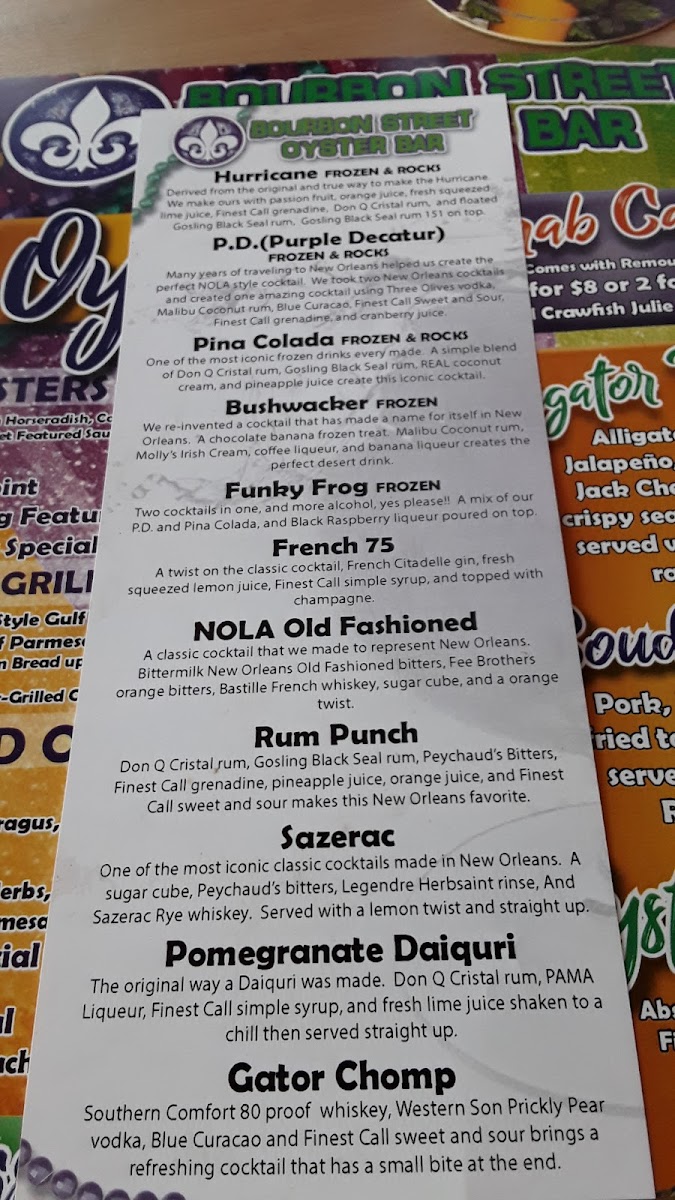 BOURBON STREET
BAR
BOURBON STREET
OYSTER BAR
Hurricane FROZEN & ROCKS
Derived from the original and true way to make the Hurricane.
We make ours with passion fruit, orange juice, fresh squeezed
lime juice, Finest Call grenadine, Don Q Cristal rum, and floated
Gosling Black Seal rum, Gosling Black Seal rum 151 on top.
P.D.(Purple Decatur)
FROZEN & ROCKS
Many years of traveling to New Orleans helped us create the
perfect NOLA style cocktail. We took two New Orleans cocktails
and created one amazing cocktail using Three Olives vodka,
Malibu Coconut rum, Blue Curacao, Finest Call Sweet and Sour,
Finest Call grenadine, and cranberry juice.
Pina Colada FROZEN & ROCKS
One of the most iconic frozen drinks every made. A simple blend
of Don Q Cristal rum, Gosling Black Seal rum, REAL coconut
cream, and pineapple juice create this iconic cocktail.
Bushwacker FROZEN
We re-invented a cocktail that has made a name for itself in New
Orleans. A chocolate banana frozen treat. Malibu Coconut rum,
Molly's Irish Cream, coffee liqueur, and banana liqueur creates the
perfect desert drink.
Funky Frog FROZEN
Two cocktails in one, and more alcohol, yes please!! A mix of our
P.D. and Pina Colada, and Black Raspberry liqueur poured on top.
French 75
A twist on the classic cocktail, French Citadelle gin, fresh
squeezed lemon juice, Finest Call simple syrup, and topped with
champagne.
NOLA Old Fashioned
A classic cocktail that we made to represent New Orleans.
Bittermilk New Orleans Old Fashioned bitters, Fee Brothers
orange bitters, Bastille French whiskey, sugar cube, and a orange
twist.
Rum Punch
Don Q Cristal rum, Gosling Black Seal rum, Peychaud's Bitters,
Finest Call grenadine, pineapple juice, orange juice, and Finest
Call sweet and sour makes this New Orleans favorite.
Sazerac
One of the most iconic classic cocktails made in New Orleans. A
sugar cube, Peychaud's bitters, Legendre Herbsaint rinse, And
Sazerac Rye whiskey. Served with a lemon twist and straight up.
Pomegranate Daiquri
The original way a Daiquri was made. Don Q Cristal rum, PAMA
Liqueur, Finest Call simple syrup, and fresh lime juice shaken to a
chill then served straight up.
Gator Chomp
Southern Comfort 80 proof whiskey, Western Son Prickly Pear
vodka, Blue Curacao and Finest Call sweet and sour brings a
refreshing cocktail that has a small bite at the end.
Oy
STERS
Horseradish, Co
et Featured Sau
int
g Featu
Special
GRILL
Style Gulf
f Parmes
n Bread up
-Grilled C
D O
ragus,
erbs,
mesa
ial
l
ach
ab Ca
Comes with Remou
for $8 or 2 fo
Crawfish Julie
gator
Alligat
Jalapeño,
Jack Che
crispy sea
served u
ro
oud
Pork,
fried to
serve
R
yst
Abs
Fi